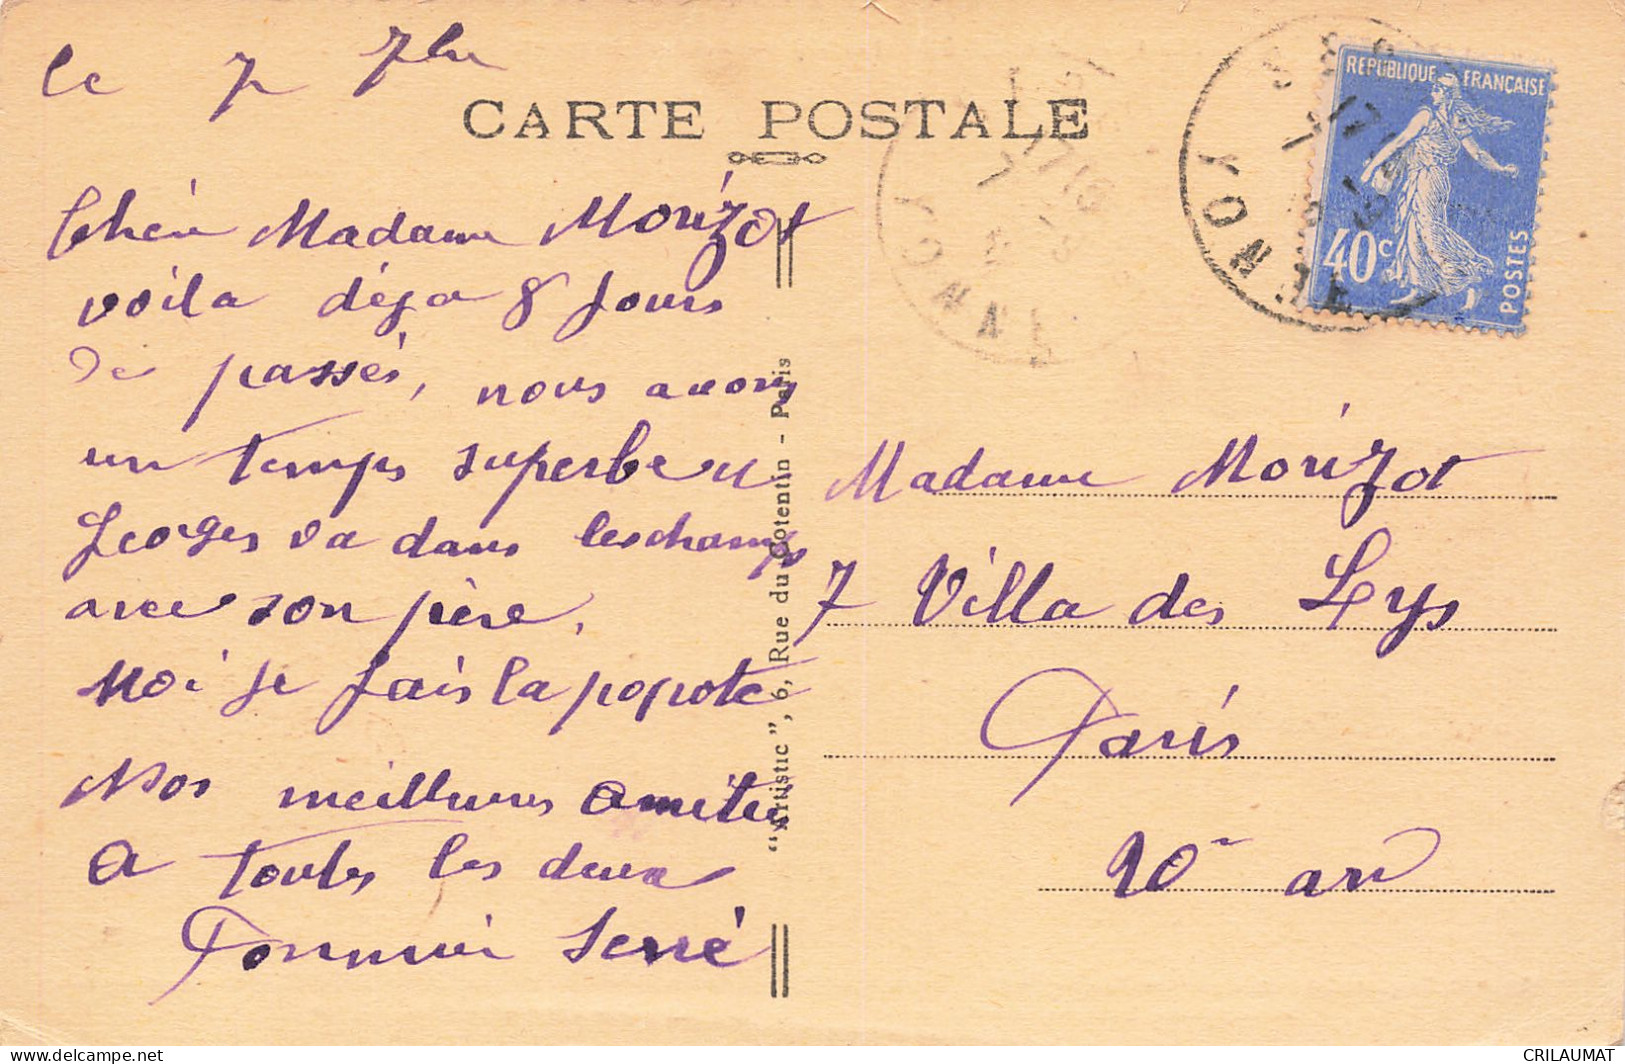 le 7 7bre
CARTE POSTALE
REPUBLIQUE FRANÇAISE
40c
POSTES
YONNE
Chère Madame Morizot
voila déja 8 jours
de passés, nous avons
un temps superbe
Georges va dans les champs
avec son père,
Moi je fais la popote
Nos meilleures amities
a toutes les deux
Serré
"Artistic", 6, Rue du Cotentin - Paris
Madame Morizot
7 Villa des Lys
Paris
20e arr
CRILAUMAT